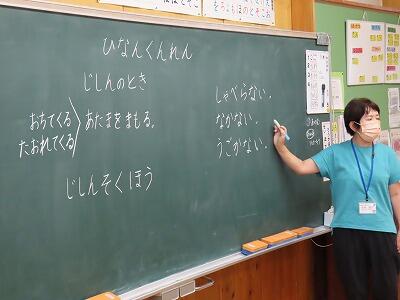 ひなんくんれん
じしんのとき
おちてくる
たおれてくる
あたまをまもる。
じしんそくほう
しゃべらない。
なかない。
うごかない。